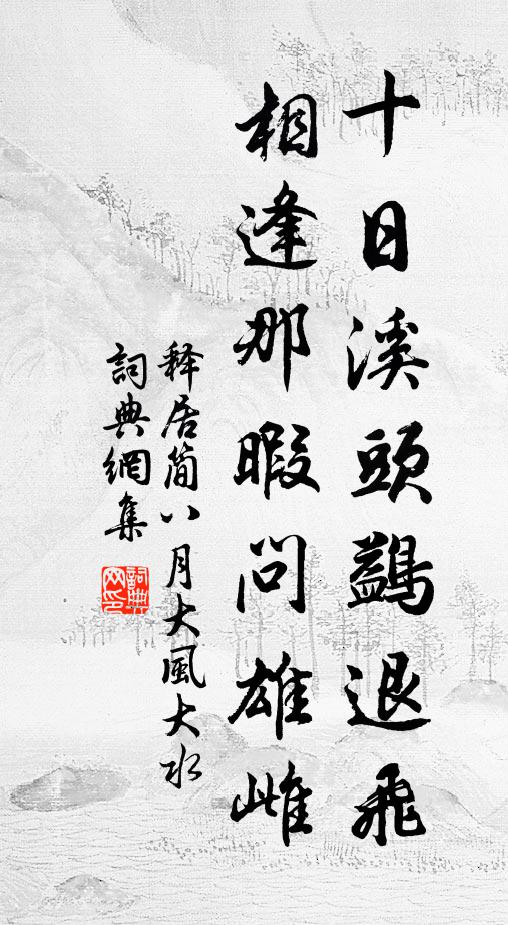 十日溪頭鷁退飛
相逢那暇問雄雌
释居简八月大風大水
詞典網集
詞典
网印